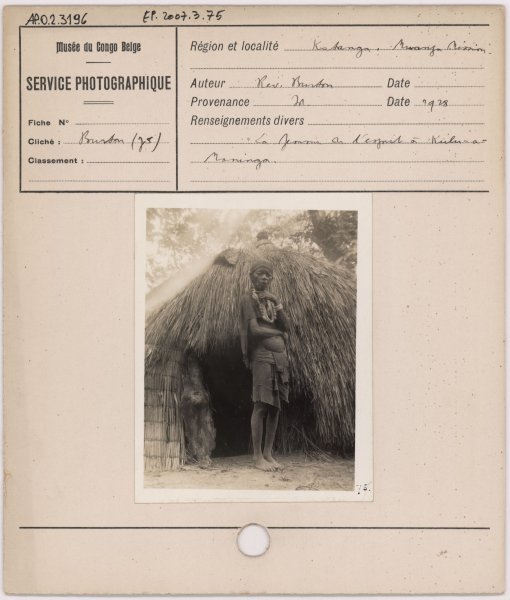 AP.0.2.3196
EP.2007.3.75
Musée du Congo Belge
SERVICE PHOTOGRAPHIQUE
Fiche N°
Cliché : Burton (75)
Classement :
Région et localité Katanga. Mwanza Mission
Auteur Rev. Burton Date
Provenance Id. Date 1928
Renseignements divers
"La femme de l'esprit à
75.